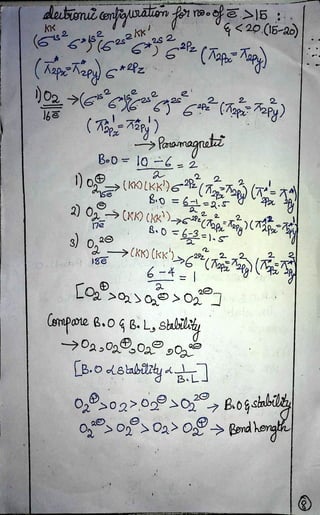 electronic configuration for no. of e̅ >15 :
KK KK' & <20 (15-20)
(σ1s² σ*1s² (σ2s² σ*2s² σ2pz (π2px=π2py)
(π*2px=π*2py) σ*2pz
1) O₂ → (σ1s² σ*1s² σ2s² σ*2s² σ2pz² (π2px²=π2py²)
16e̅ (π*2px¹=π*2py¹)
→ Paramagnetic
B.O = 10-6/2 = 2
1) O₂⊕ → (KK) (KK') σ2pz² (π2px²=π2py²) (π*2px¹=π*2py)
15e̅ B.O = 6-1/2 = 2.5
2) O₂⊖ → (KK) (KK') → σ2pz² (π2px²=π2py²) (π*2px²=π*2py¹)
17e̅ B.O = 6-3/2 = 1.5
3) O₂2⊖ → (KK) (KK') → σ2pz² (π2px²=π2py²) (π*2px²=π*2py²)
18e̅
6-4/2 = 1
[O₂⊕ > O₂ > O₂⊖ > O₂2⊖]
Compare B.O & B.L, stability
→ O₂, O₂⊕, O₂⊖, O₂2⊖
[B.O ∝ stability ∝ 1/B.L]
O₂⊕ > O₂ > O₂⊖ > O₂2⊖ → B.O & stability
O₂2⊖ > O₂⊖ > O₂ > O₂⊕ → Bond length
8